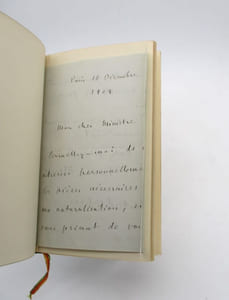 Paris 10 Décembre
1908
Mon cher Ministre
Permettez-moi de
personnellement
les pièces nécessaires
ma naturalisation, en
vous priant de vou